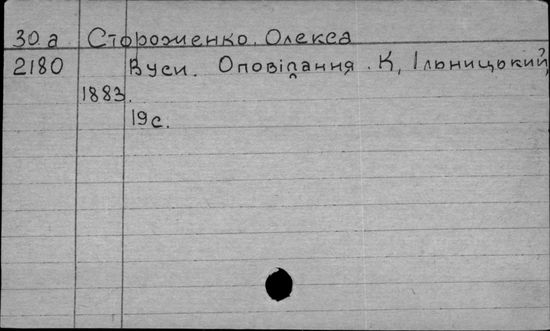 30 а Стороженко, Олекса
2180 Вуси. Оповіпання. К, Ільницький,
1883.
19 с.